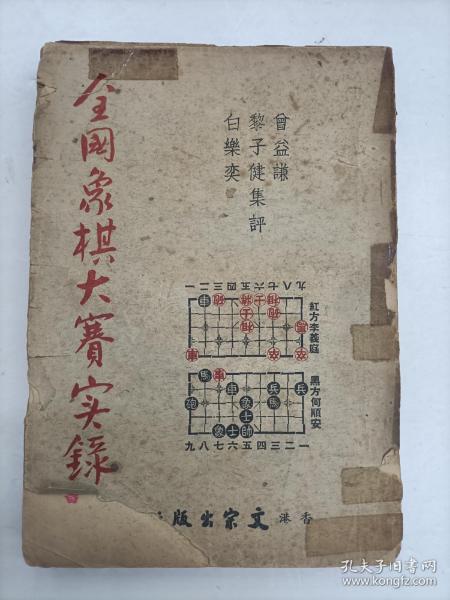 全國象棋大賽实錄
曾益謙
黎子健集評
白樂奕
九八七六五四三二一
紅方李義庭
黑方何順安
九八七六五四三二一
香港 文宗出版
孔夫子旧书网
www.kongfz.com